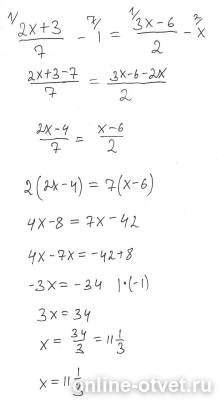 1/ 2x+3/7 - 7/ 1 = 1/ 3x-6/2 - 2/ x
2x+3-7/7 = 3x-6-2x/2
2x-4/7 = x-6/2
2(2x-4) = 7(x-6)
4x-8 = 7x-42
4x-7x = -42+8
-3x = -34 | ·(-1)
3x = 34
x = 34/3 = 11 1/3
x = 11 1/3
online-otvet.ru